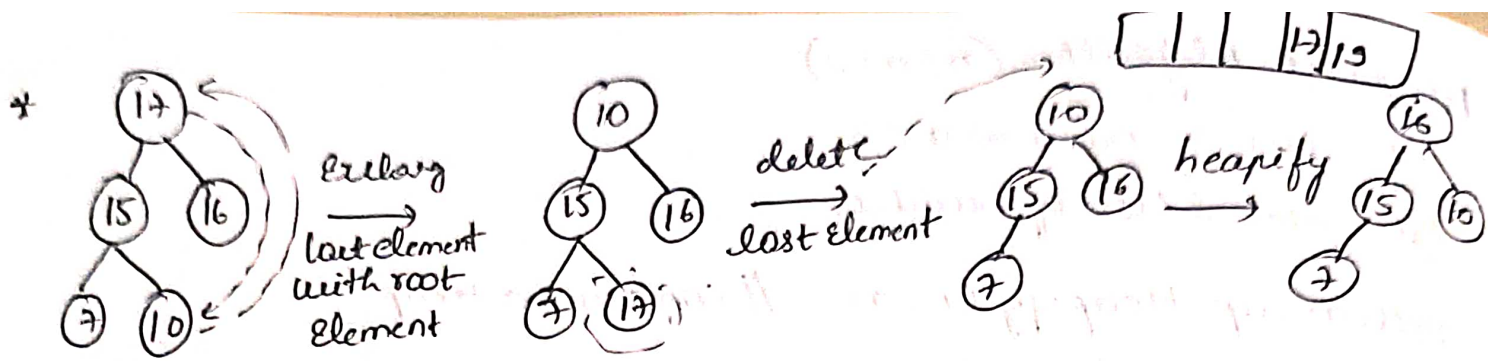 17 19
*
17
15 16
7 10
Exchang
last element
with root
Element
10
15 16
7 17
delete
last Element
10
15 16
7
heapify
16
15 10
7